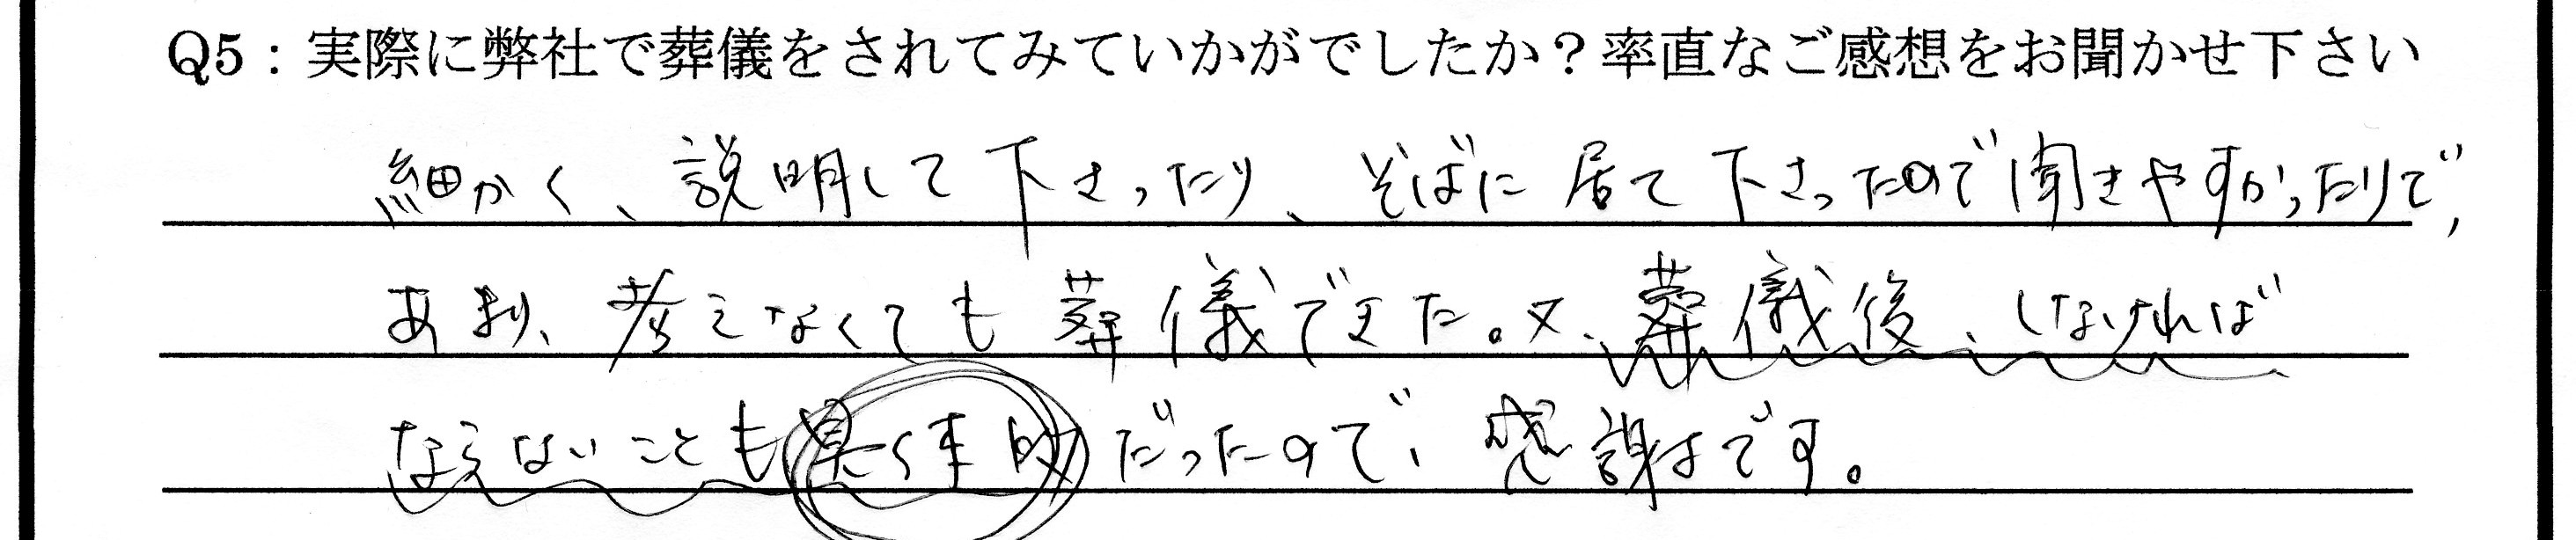 Q5：実際に弊社で葬儀をされてみていかがでしたか？率直なご感想をお聞かせ下さい
細かく、説明して下さったり、そばに居て下さったので聞きやすかったりで、
あまり、考えなくても葬儀できた。又、葬儀後、しなければ
ならないことも具体的だったので、感謝です。